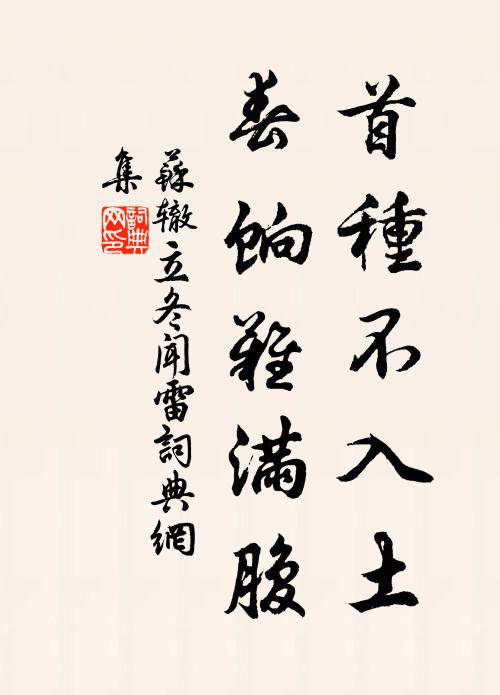 首種不入土
春餉難滿腹
蘇辙立冬聞雷詞典網
集
詞典网印